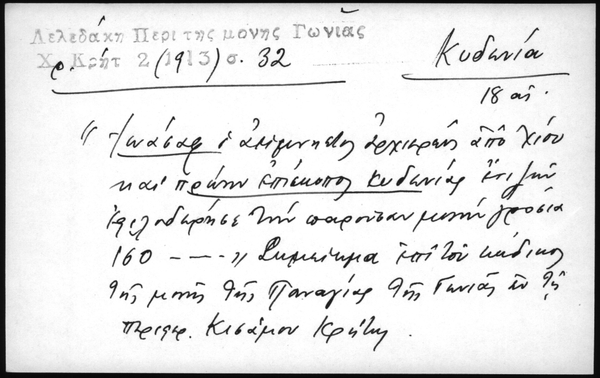 Λελεδάκη Περί της μονής Γωνιάς
Χ. Κρήτ 2 (1913) σ. 32
Κυδωνία
18 αἰ.
" Ἰωάσαφ ὁ ἀείμνηστος ἀρχιερεὺς ἀπὸ Χίου
καὶ πρώην ἐπίσκοπος Κυδωνίας ἔτι ζῶν
ἐφιλοδώρησε τὴν παροῦσαν μονὴν γρόσια
160 ---- " Σημείωμα ἐπὶ τοῦ κώδικος
τῆς μονῆς τῆς Παναγίας τῆς Γωνιᾶς ἐν τῇ
περιφερ. Κισάμου Κρήτης.